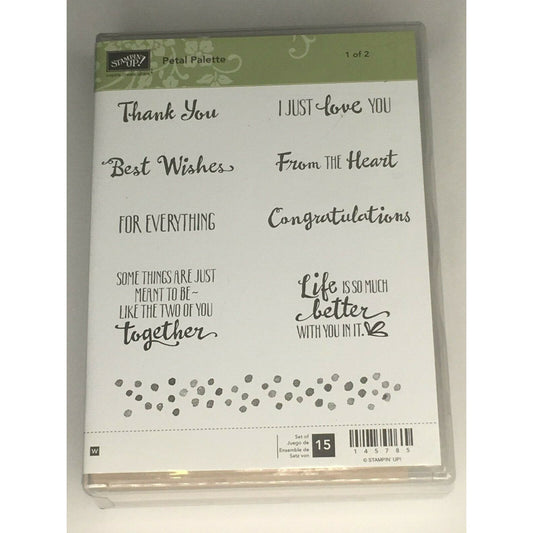 STAMPIN' UP!
Petal Palette
1 of 2
Thank You
I JUST love YOU
Best Wishes
From THE Heart
FOR EVERYTHING
Congratulations
SOME THINGS ARE JUST
MEANT TO BE~
LIKE THE TWO OF YOU
together
Life IS SO MUCH
better
WITH YOU IN IT.
W
Set of
Juego de
Ensemble de
Setz von
15
145785
© STAMPIN' UP!